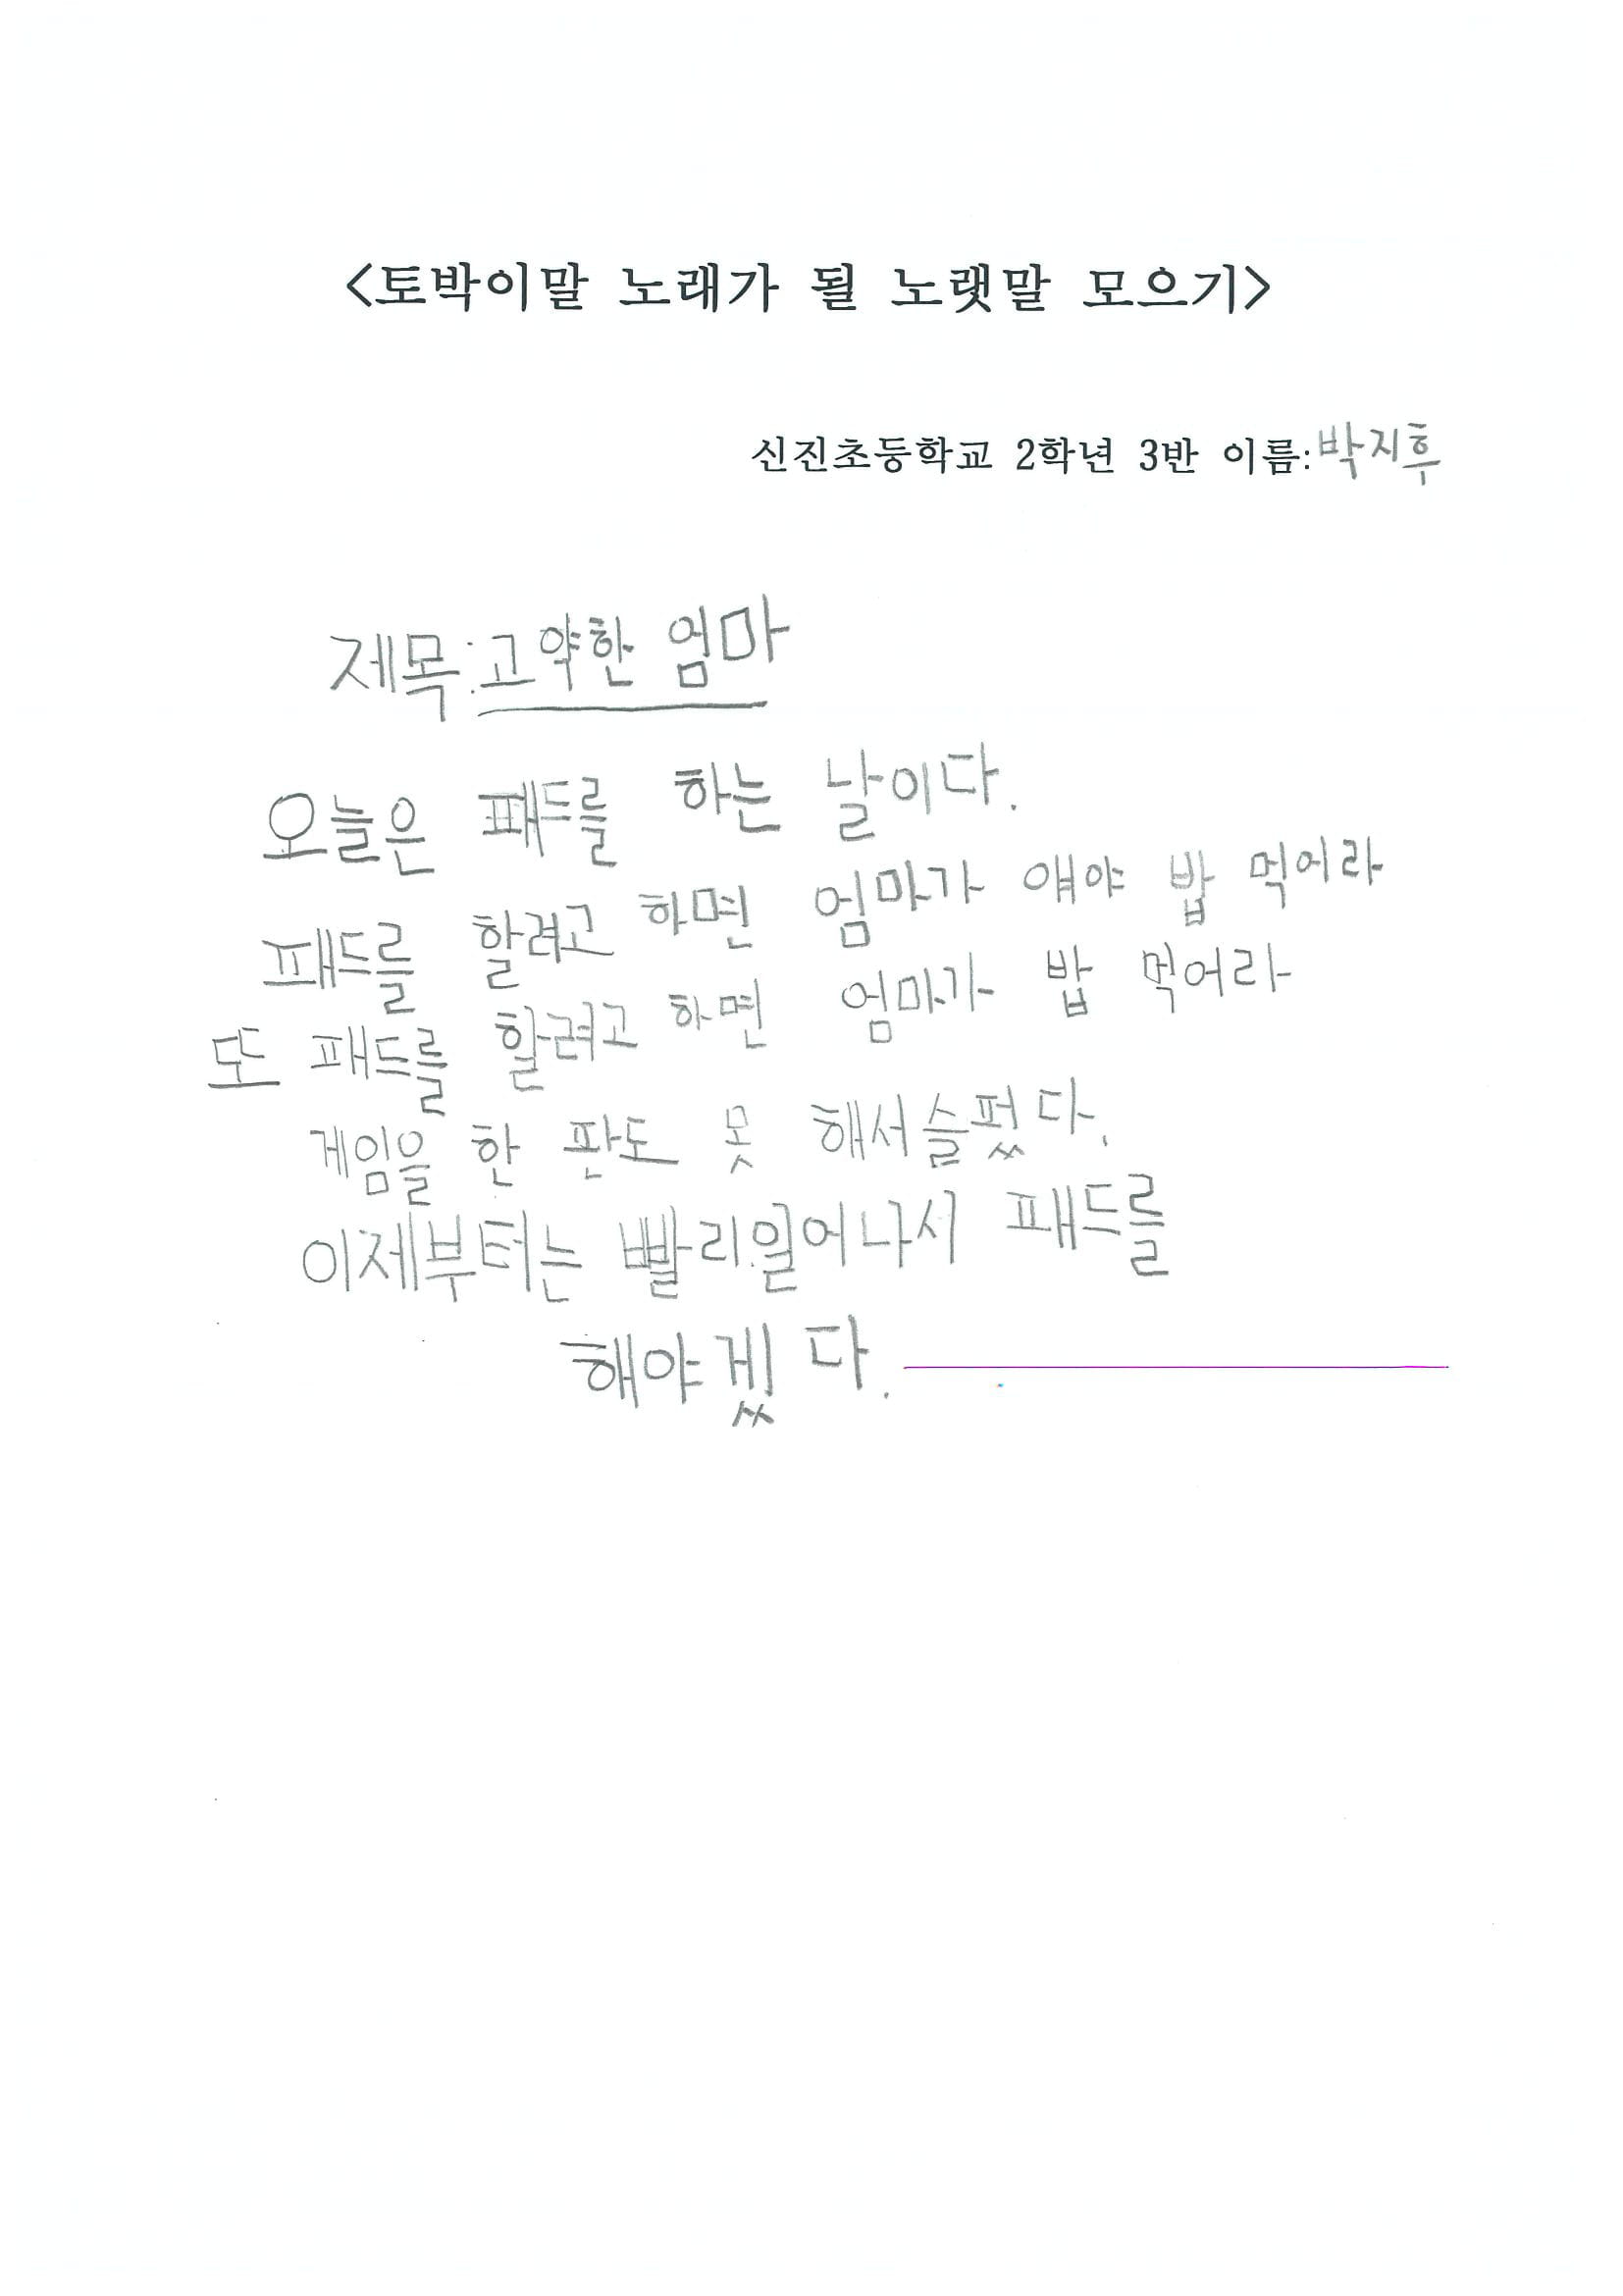 <토박이말 노래가 될 노랫말 모으기>
신진초등학교 2학년 3반 이름:박지후
제목:고약한 엄마
오늘은 패드를 하는 날이다.
패드를 할려고 하면 엄마가 얘야 밥 먹어라
또 패드를 할려고 하면 엄마가 밥 먹어라
게임을 한 판도 못 해서슬펐다.
이제부터는 빨리일어나서 패드를
해야겠다.